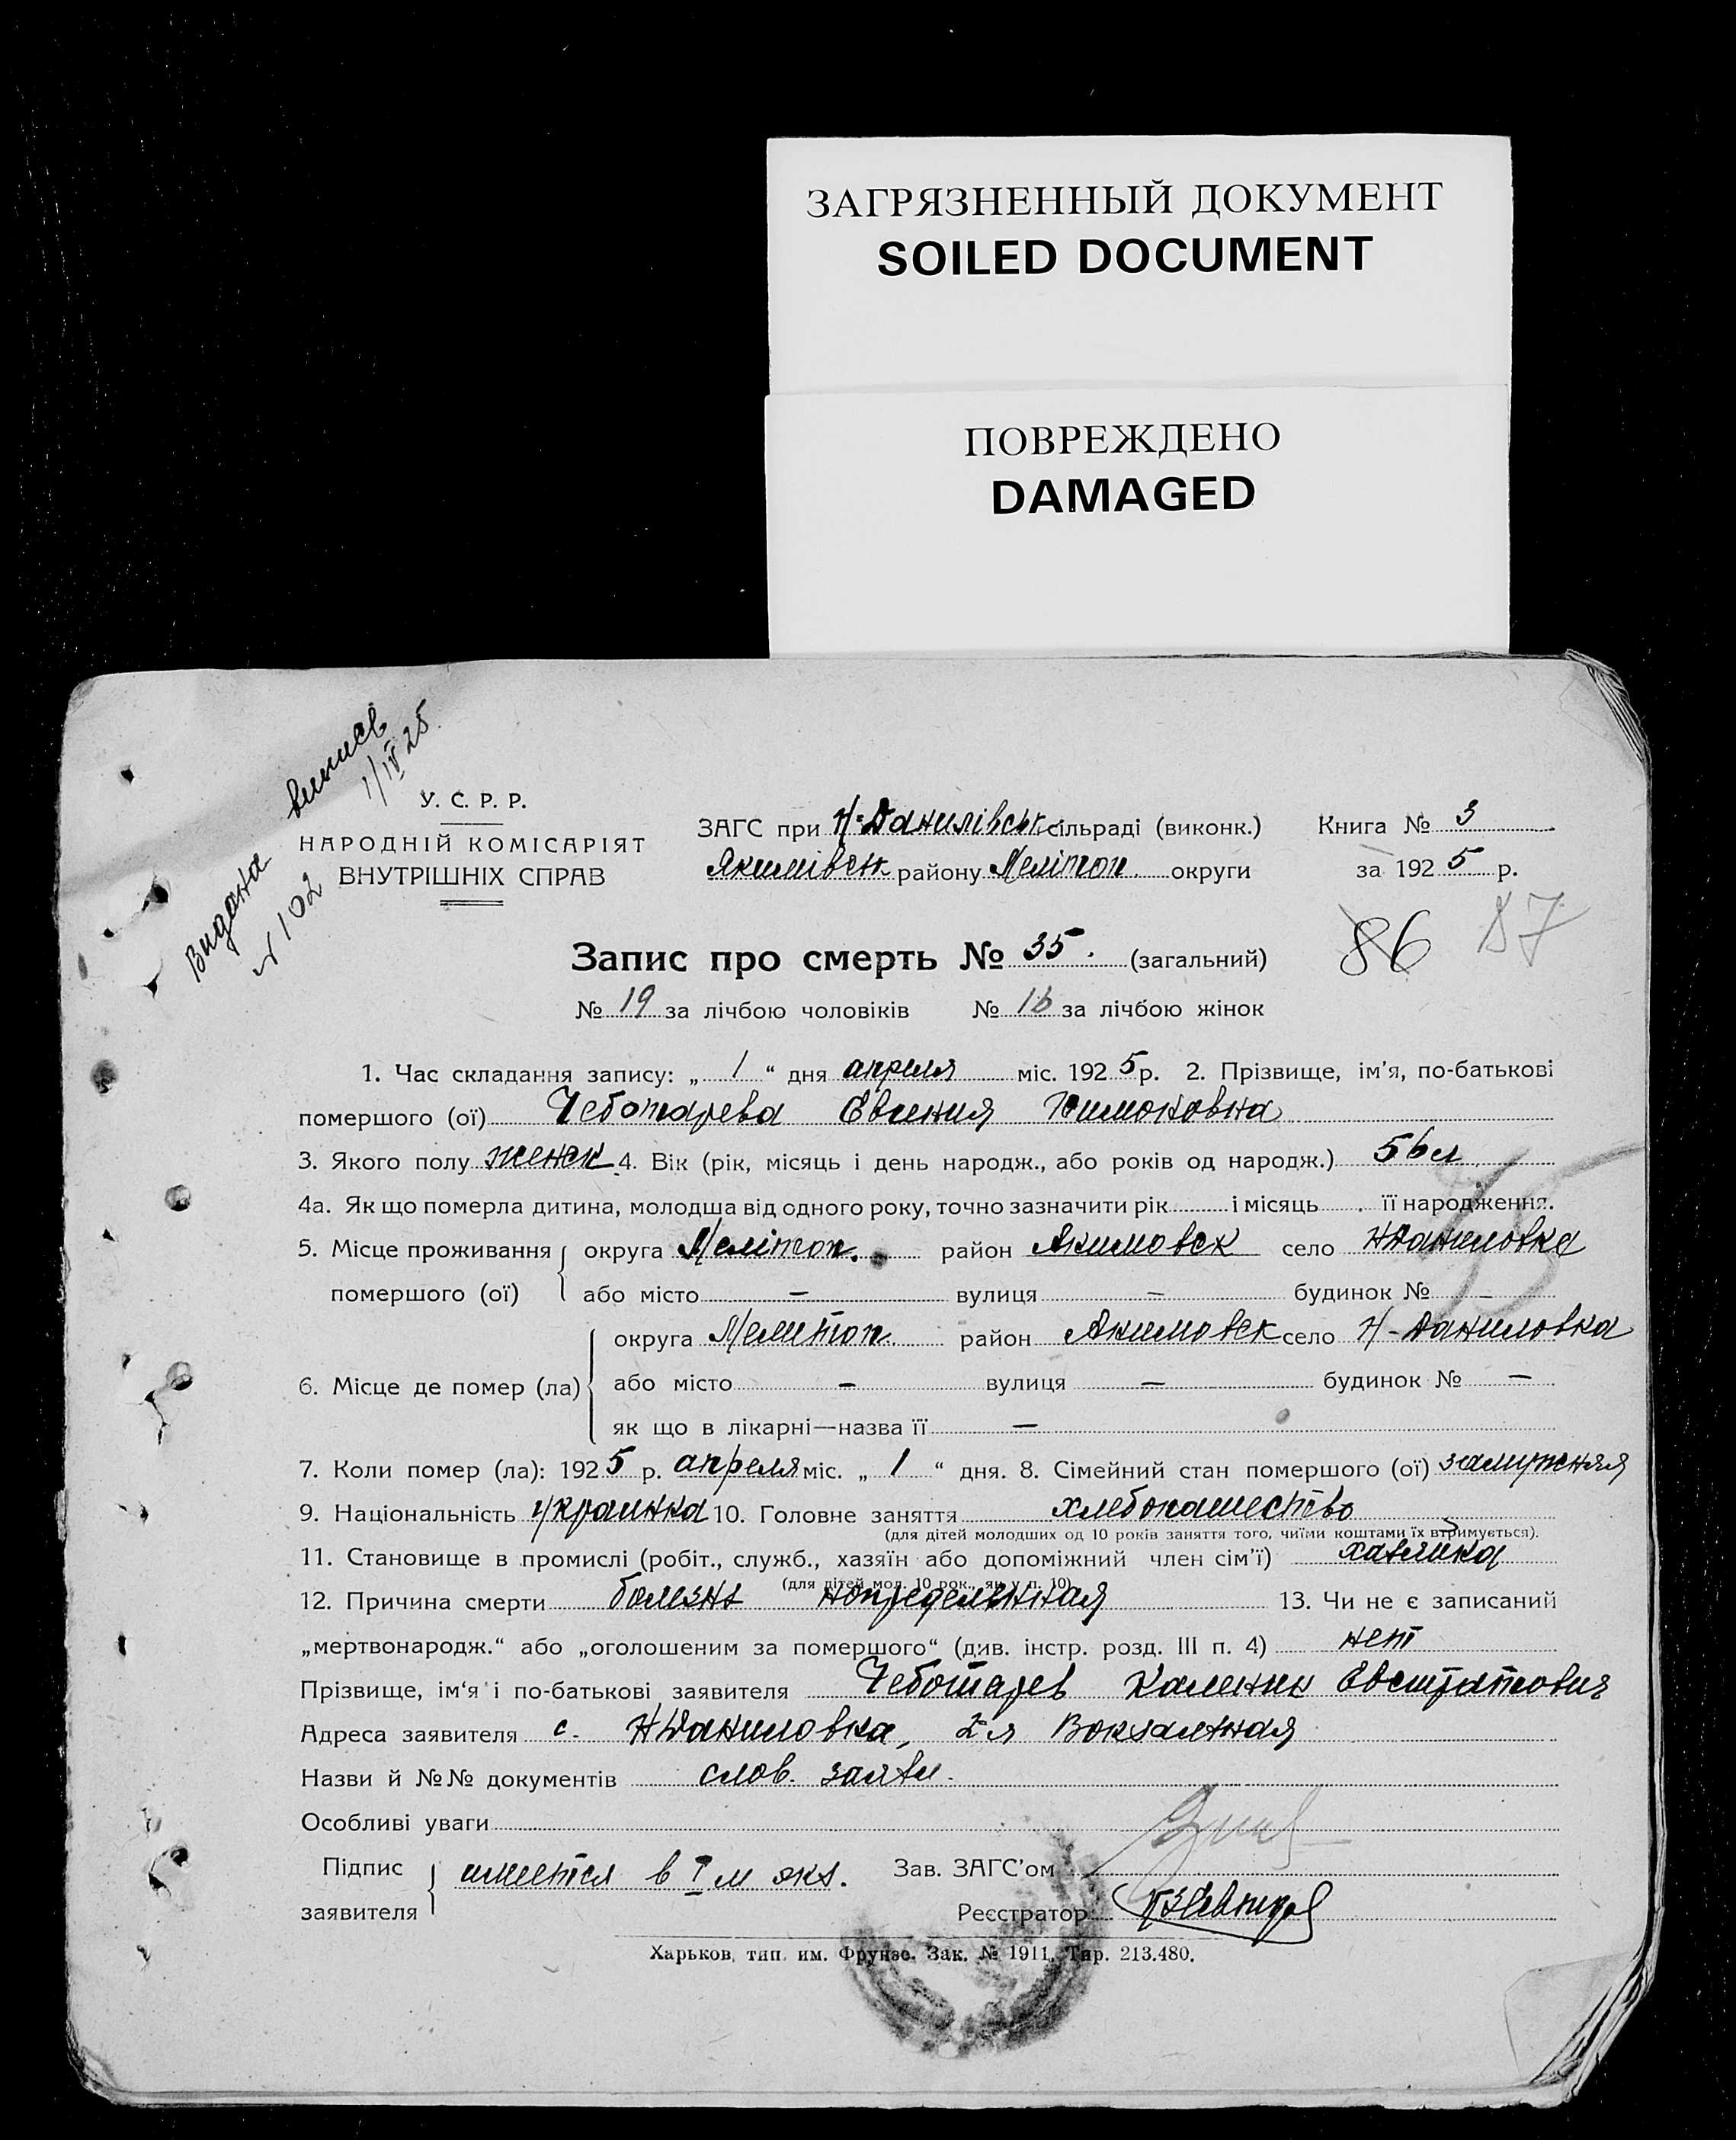 ЗАГРЯЗНЕННЫЙ ДОКУМЕНТ
SOILED DOCUMENT
ПОВРЕЖДЕНО
DAMAGED
Видана виписв
№ 102 1/IV 25
У. С. Р. Р.
НАРОДНІЙ КОМІСАРІЯТ
ВНУТРІШНІХ СПРАВ
ЗАГС при Н-Данилівськ. сільраді (виконк.) Книга № 3
Якимівськ району Меліпоп. округи за 1925 р.
86 87
Запис про смерть № 35. (загальний)
№ 19 за лічбою чоловіків № 16 за лічбою жінок
1. Час складання запису: „ 1 “ дня апреля міс. 1925 р. 2. Прізвище, ім'я, по-батькові
помершого (ої) Чеботарева Евгения
3. Якого полу женск 4. Вік (рік, місяць і день народж., або років од народж.) 56 л
4а. Як що померла дитина, молодша від одного року, точно зазначити рік і місяць її народження.
5. Місце проживання округа Мелітоп. район Акимовск село НДаниловка
помершого (ої) або місто — вулиця — будинок № —
округа Мелитоп. район Акимовск село Н-Даниловка
6. Місце де помер (ла) або місто — вулиця — будинок № —
як що в лікарні—назва її —
7. Коли помер (ла): 1925 р. апреля міс. „ 1 “ дня. 8. Сімейний стан помершого (ої) замужняя
9. Національність украинка 10. Головне заняття хлебопашество
(для дітей молодших од 10 років заняття того, чиїми коштами їх втримується).
11. Становище в промислі (робіт., служб., хазяїн або допоміжний член сім'ї) хазяйка
(для дітей мол. 10 рок., як у п. 10)
12. Причина смерти болезнь 13. Чи не є записаний
„мертвонародж.“ або „оголошеним за померш​ого“ (див. інстр. розд. III п. 4) нет
Прізвище, ім'я і по-батькові заявителя Чеботарев Калиник Евстратович
Адреса заявителя с. НДаниловка, 2-я Вокзальная
Назви й №№ документів слов. заявл.
Особливі уваги
Підпис заявителя имеется в I м экз. Зав. ЗАГС'ом
Реєстратор
Харьков, тип. им. Фрунзе. Зак. № 1911. Тир. 213.480.